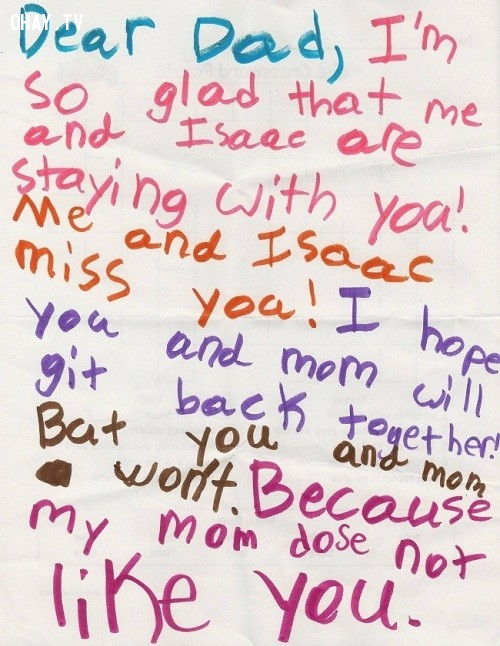 OHAY.TV
Dear Dad, I'm
so glad that me
and Isaac are
staying with you!
Me and Isaac
miss you! I hope
you and mom will
git back together!
But you and mom
won't. Because
my mom dose not
like you.